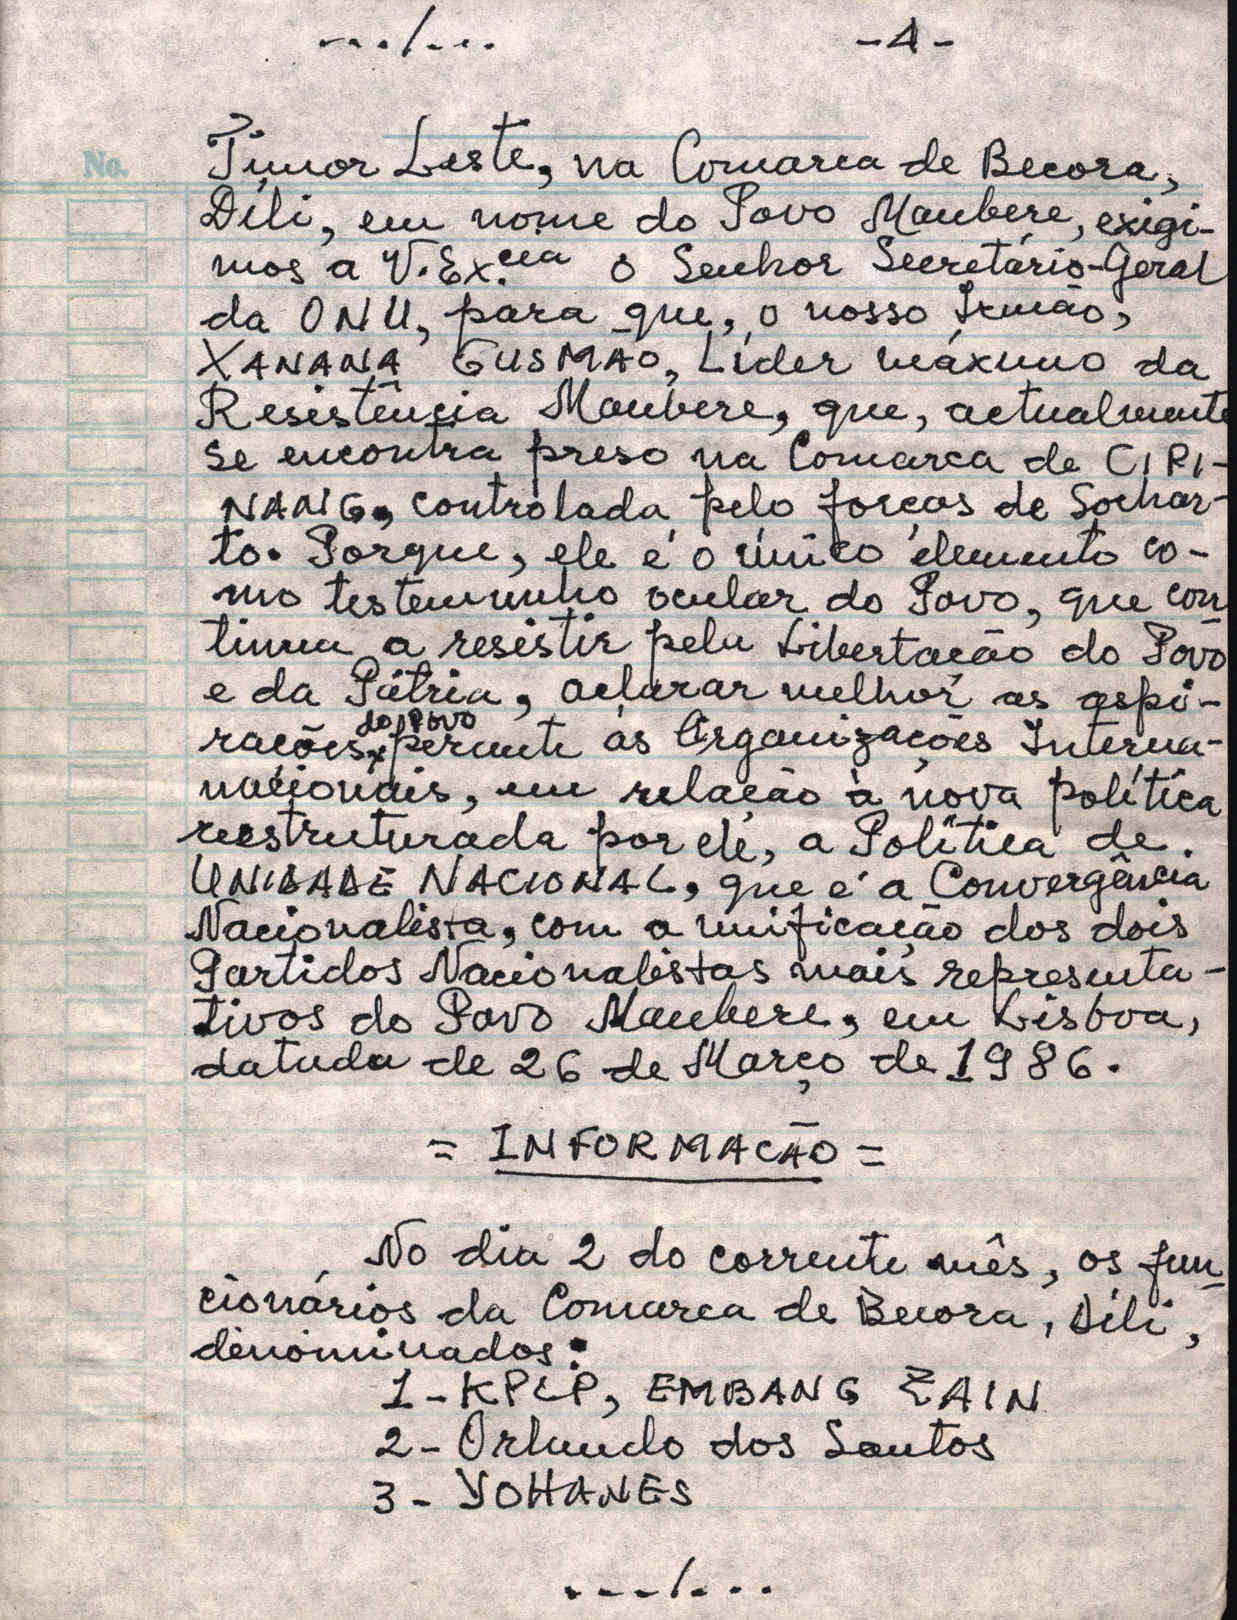 .../...
-4-
No.
Timor Leste, na Comarca de Becora,
Díli, em nome do Povo Maubere, exigi-
mos a V.Ex.cia o Senhor Secretário-Geral
da ONU, para que, o nosso Irmão,
XANANA GUSMAO, Líder máximo da
Resistência Maubere, que, actualmente
se encontra preso na Comarca de CIPI-
NANG, controlada pelo forças de Sohar-
to. Porque, ele é o único elemento co-
mo testemunho ocular do Povo, que con
tinua a resistir pela Libertação do Povo
e da Pátria, aclarar melhor as aspi-
do Povo
rações x perante as Organizações Interna-
nacionais, em relação à nova política
reestruturada por ele, a Política de
UNIDADE NACIONAL, que é a Convergência
Nacionalista, com a unificação dos dois
Partidos Nacionalistas mais representa-
tivos do Povo Maubere, em Lisboa,
datada de 26 de Março de 1986.
= INFORMAÇÃO =
No dia 2 do corrente mês, os fun
cionários da Comarca de Becora, Díli,
denominados:
1-KPLP, EMBANG ZAIN
2- Orlando dos Santos
3- YOHANES
.../...